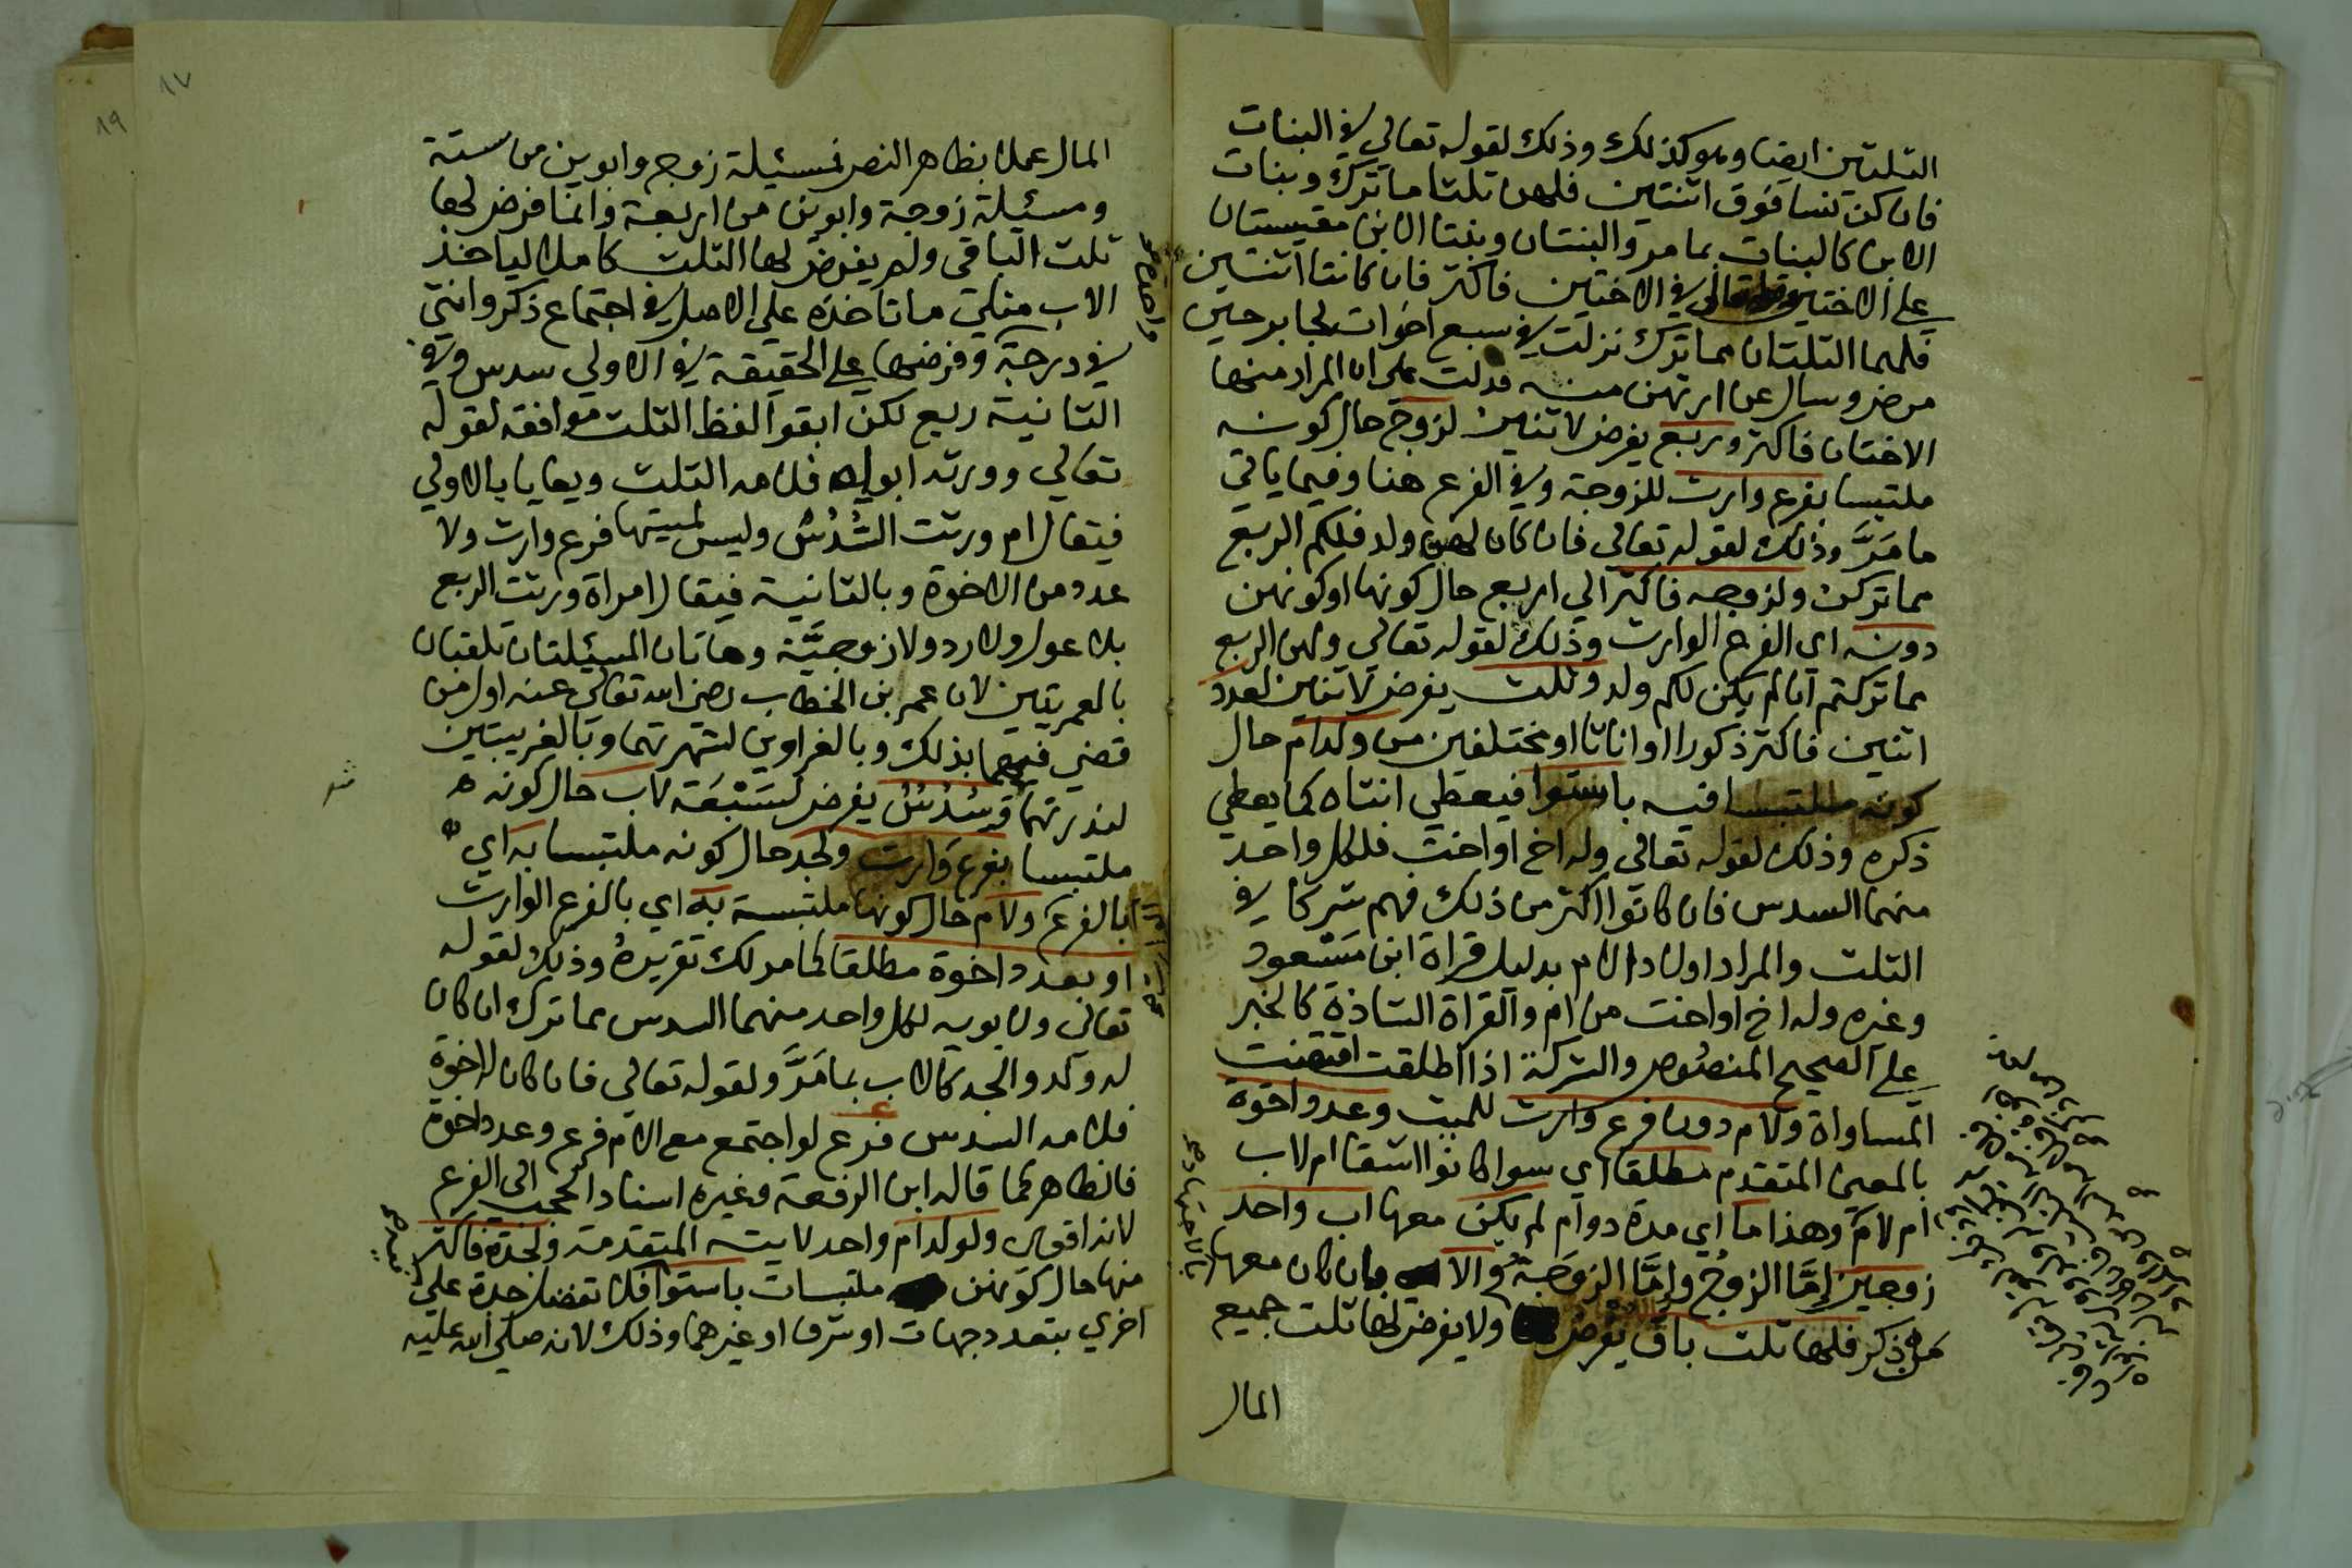 الثلثين ايضا وهو كذلك وذلك لقوله تعالي في البنات
فان كن نسا فوق اثنتين فلهن ثلثا ما ترك وبنات
الابن كالبنات بما مر والبنتان وبنتا الابن مقيستان
علي الاختين في الاختين فاكثر فان كانتا اثنتين
فلهما الثلثان مما ترك نزلت في سبع اخوات لجابر حين
مرض وسال عن ارثهن منه فدلت علي ان المراد منها
الاختان فاكثر وربع يفرض لاثنين لزوج حال كونه
ملتبسا بفرع وارث للزوجة وفي الفرع هنا وفيما ياتي
ما مَرَّ وذلك لقوله تعالي فان كان لهن ولد فلكم الربع
مما تركن ولزوجه فاكثر الي اربع حال كونها او كونهن
دونه اي الفرع الوارث وذلك لقوله تعالي ولهن الربع
مما تركتم ان لم يكن لكم ولد وثلث يفرض لاثنين لعدد
اثنين فاكثر ذكورا او اناثا او مختلفين من ولد ام حال
كونه ملتبسا فيه باستوا فيعطي انثاه كما يعطي
ذكره وذلك لقوله تعالي وله اخ او اخت فلكل واحد
منهما السدس فان كانوا اكثر من ذلك فهم شركا في
الثلث والمراد اولاد الام بدليل قراة ابن مَسْعود
وغيره وله اخ او اخت من ام والقراة الشاذة كالخبر
علي الصحيح المنصُوص والشركة اذا اطلقت اقتضت
المساواة ولام دون فرع وارث للميت وعدد اخوة
بالمعني المتقدم مطلقا اي سوا كانوا اشقا ام لاب
ام لام وهذا ما اي مدة دوام لم يكن معها اب واحد
زوجين إمَّا الزوجُ وإمَّا الزوجَة والا بان كان معها
من ذكر فلها ثلث باق يفرض ولا يفرض لها ثلث جميع
المال
المال عملا بظاهر النص فمسئلة زوج وابوين من ستة
ومسئلة زوجة وابوين من اربعة وانما فرض لها
ثلث الباقي ولم يفرض لها الثلث كاملا لياخذ
الاب مثلي ما تاخذه علي الاصل في اجتماع ذكر وانثي
في درجة وفرضها علي الحقيقة في الاولي سدس وفي
الثانية ربع لكن ابقوا لفظ الثلث موافقه لقوله
تعالي وورثه ابواه فلامه الثلث ويعايا بالاولي
فيقال ام ورثت السُّدُسُ وليس لميتها فرع وارث ولا
عدد من الاخوة وبالثانية فيقال امراة ورثت الربع
بلا عول ولا رد ولا زوجيَّة وهاتان المسئلتان تلقبان
بالعمريتين لان عمر بن الخطاب رضي الله تعالي عنه اول من
قضي فيهما بذلك وبالغراوين لشهرتهما وبالغريبتين
لندرتهما وسُدُسُ يفرض لسَبْعَة لاب حال كونه
ملتبسا بفرع وَارث ولجد حال كونه ملتبسا به اي
بالفرع ولام حال كونها ملتبسة به اي بالفرع الوارث
او بعدد اخوة مطلقا لما مر لك تقريرهُ وذلك لقوله
تعالي ولابويه لكل واحد منهما السدس مما ترك ان كان
له ولد والجد كالاب بما مَرَّ ولقوله تعالي فان كان له اخوة
فلامه السدس فرع لو اجتمع مع الام فرع وعدد اخوة
فالظاهر كما قاله ابن الرفعة وغيره اسناد الحجب الي الفرع
لانه اقوي ولولد ام واحد لايته المتقدمة ولجدة فاكثر
منها حال كونهن ملتبسات باستوا فلا تفضل جدة علي
اخري بتعدد جهات او شرف او غيرهما وذلك لانه صلي الله عليه